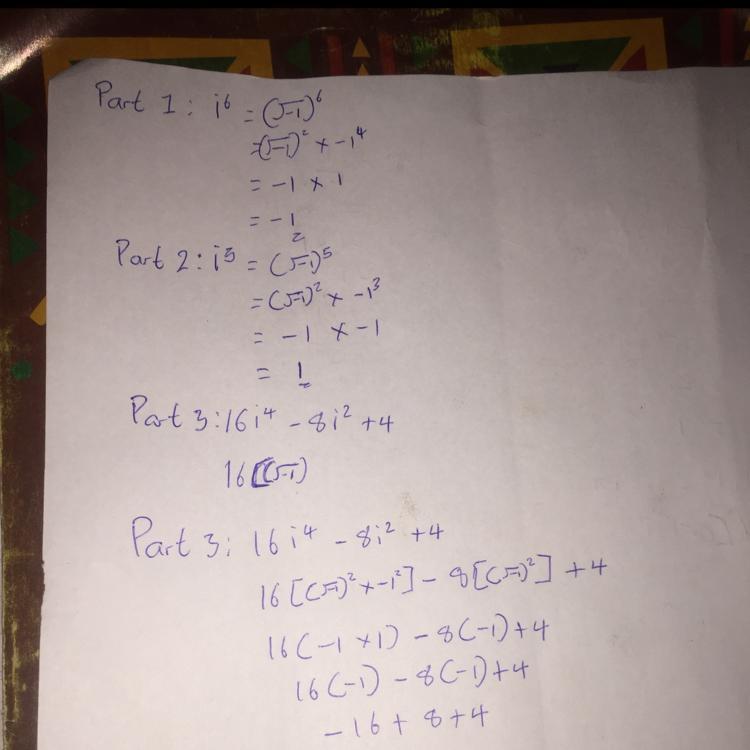 Part 1: i⁶ = (√-1)⁶
= (√-1)² × -1⁴
= -1 × 1
= -1
Part 2: i⁵ = (√-1)⁵
= (√-1)² × -1³
= -1 × -1
= 1
Part 3: 16i⁴ - 8i² + 4
16[(√-1)
Part 3: 16i⁴ - 8i² + 4
16[(√-1)² × -1²] - 8[(√-1)²] + 4
16(-1 × 1) - 8(-1) + 4
16(-1) - 8(-1) + 4
-16 + 8 + 4